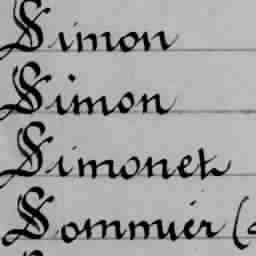 Simon
Simon
Simonet
Sommier (